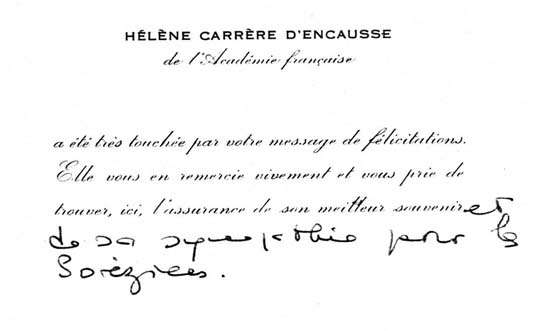 HÉLÈNE CARRÈRE D'ENCAUSSE
de l'Académie française
a été très touchée par votre message de félicitations.
Elle vous en remercie vivement et vous prie de
trouver, ici, l'assurance de son meilleur souvenir et
de sa sympathie pour les